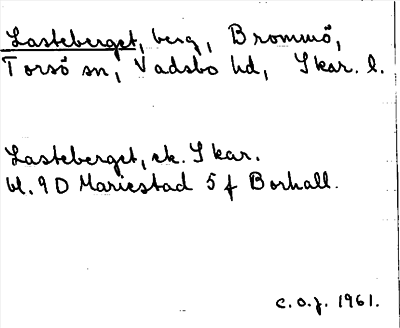 Lasteberget, berg, Brommö,
Torsö sn, Vadsbo hd, Skar. l.
Lasteberget, ek. Skar.
bl. 9D Mariestad 5 f Borhall.
c.o.j. 1961.